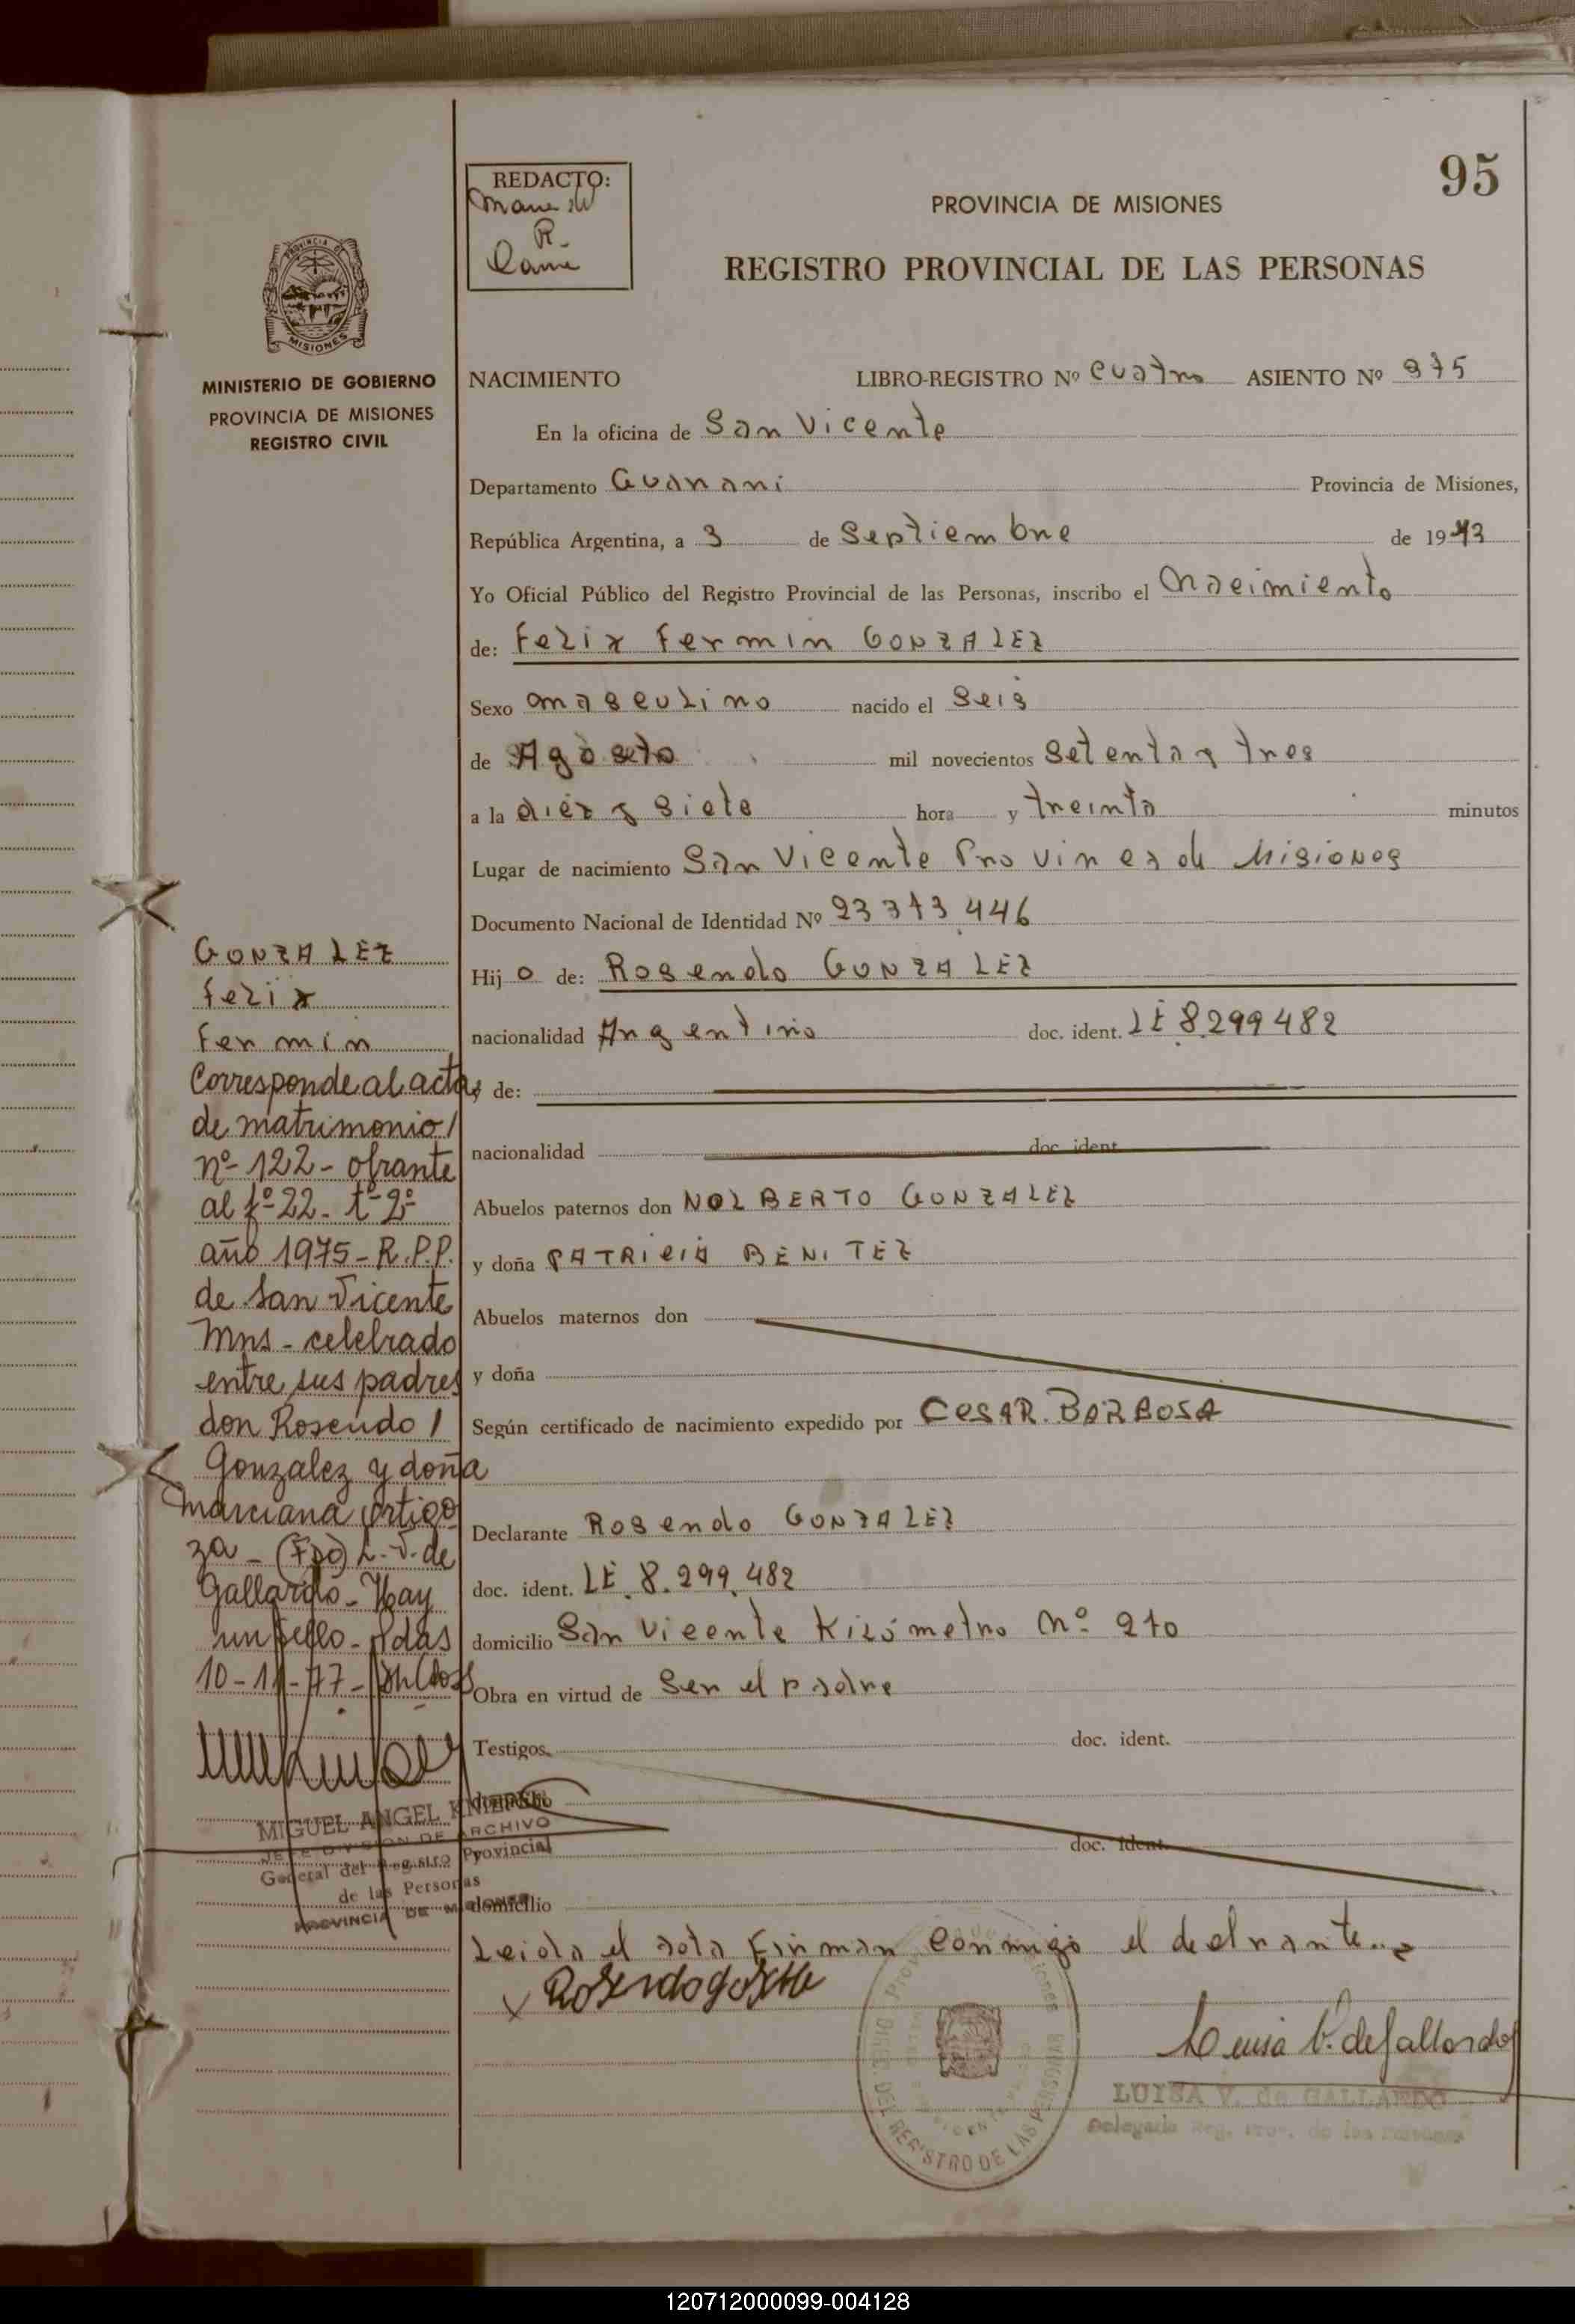 95
REDACTO:
R.
PROVINCIA DE MISIONES
REGISTRO PROVINCIAL DE LAS PERSONAS
PROVINCIA DE
MISIONES
MINISTERIO DE GOBIERNO
PROVINCIA DE MISIONES
REGISTRO CIVIL
NACIMIENTO LIBRO-REGISTRO Nº cuatro ASIENTO Nº 375
En la oficina de San Vicente
Departamento Guarani Provincia de Misiones,
República Argentina, a 3 de Septiembre de 1973
Yo Oficial Público del Registro Provincial de las Personas, inscribo el nacimiento
de: Felix Fermin GONZALEZ
Sexo masculino nacido el Seis
de Agosto mil novecientos setenta y tres
a la diez y siete hora y treinta minutos
Lugar de nacimiento San Vicente Provincia de Misiones
Documento Nacional de Identidad Nº 23373.446
Hijo de: Rosendo GONZALEZ
nacionalidad Argentino doc. ident. LE 8.299482
y de:
nacionalidad doc. ident.
Abuelos paternos don NOLBERTO GONZALEZ
y doña PATRICIA BENITEZ
Abuelos maternos don
y doña
Según certificado de nacimiento expedido por CESAR. BARBOSA
Declarante Rosendo GONZALEZ
doc. ident. LE. 8.299.482
domicilio San Vicente Kilómetro Nº 270
Obra en virtud de Ser el padre
Testigos doc. ident.
domicilio
doc. ident.
domicilio
Leida el acta Firman conmigo el declarante..
GONZALEZ
Felix
Fermin
Corresponde al acta
de matrimonio/
nº- 122- obrante
al fº-22- tº-2º
año 1975- R.P.P.
de San Vicente
Mns- celebrado
entre sus padres
don Rosendo /
Gonzalez y doña
Marciana Ortigo
za- (Fdo) L. V. de
Gallardo- Hay
un sello- Pdas
10-11-77-
MIGUEL ANGEL
JEFE DIVISION DE ARCHIVO
General del Registro Provincial
de las Personas
PROVINCIA DE MISIONES
Luisa V. de Gallardo
LUISA V. de GALLARDO
Delegada Reg. Prov. de las Personas
DEL REGISTRO DE LAS PERSONAS
120712000099-004128